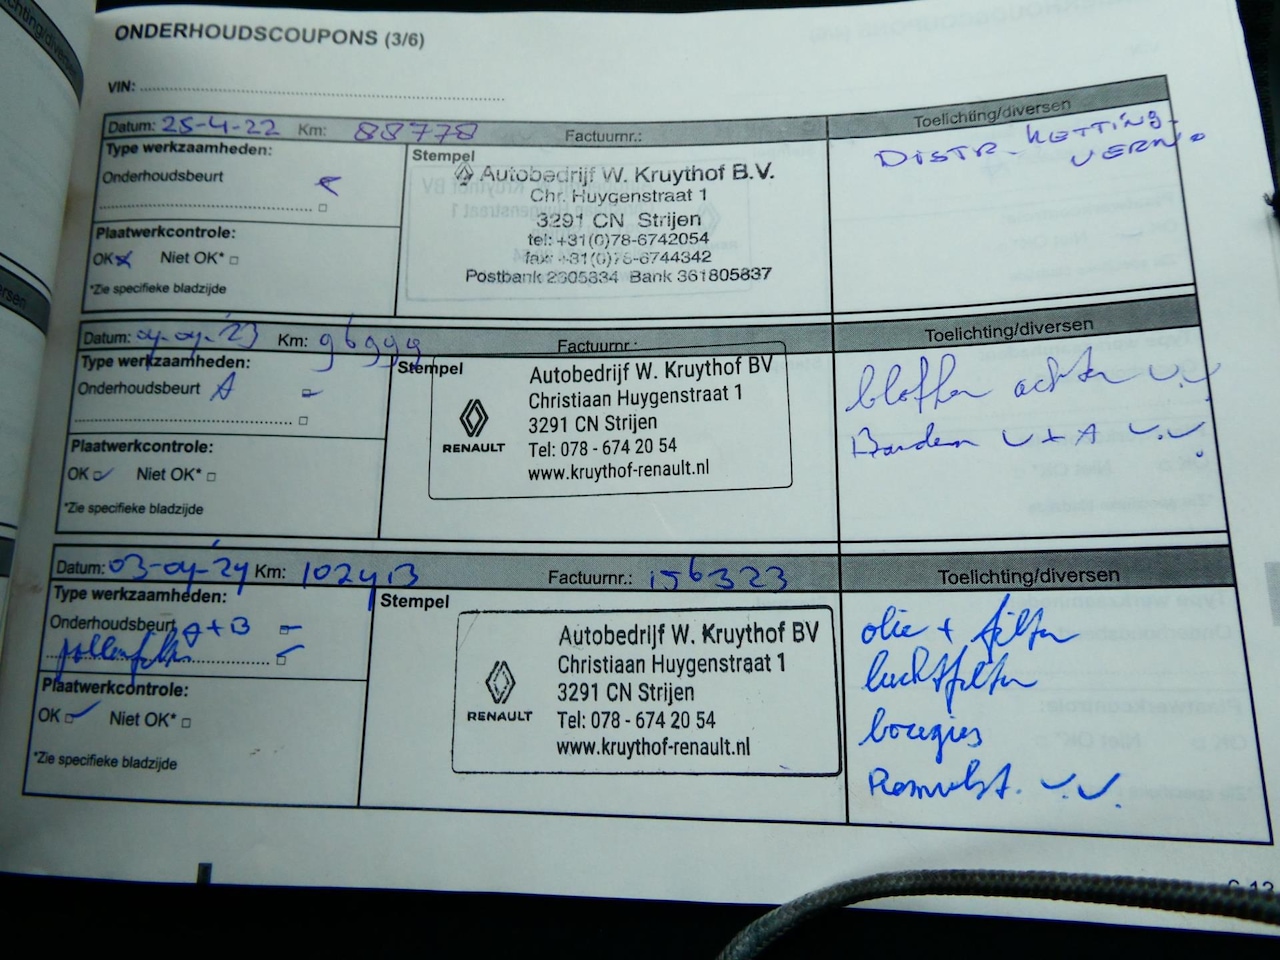 ONDERHOUDSCOUPONS (3/6)
VIN:
Datum: 25-4-22 Km: 88778 Factuurnr.: Toelichting/diversen
Type werkzaamheden:
Onderhoudsbeurt
Plaatwerkcontrole:
OK Niet OK*
*Zie specifieke bladzijde
Stempel
Autobedrijf W. Kruythof B.V.
Chr. Huygenstraat 1
3291 CN Strijen
tel: +31(0)78-6742054
fax: +31(0)78-6744342
Postbank 2605834 Bank 361805837
DISTR. KETTING
VERN.
Datum: 04-04-'23 Km: 96999 Factuurnr.: Toelichting/diversen
Type werkzaamheden:
Onderhoudsbeurt A
Plaatwerkcontrole:
OK Niet OK*
*Zie specifieke bladzijde
Stempel
RENAULT
Autobedrijf W. Kruythof BV
Christiaan Huygenstraat 1
3291 CN Strijen
Tel: 078 - 674 20 54
www.kruythof-renault.nl
bloffen achter v.v
Banden v + A v.v.
Datum: 03-04-'24 Km: 102413 Factuurnr.: 156323 Toelichting/diversen
Type werkzaamheden:
Onderhoudsbeurt A+B
pollenfilter
Plaatwerkcontrole:
OK Niet OK*
*Zie specifieke bladzijde
Stempel
RENAULT
Autobedrijf W. Kruythof BV
Christiaan Huygenstraat 1
3291 CN Strijen
Tel: 078 - 674 20 54
www.kruythof-renault.nl
olie + filter
luchtfilter
bougies
Remvlst. v.v.